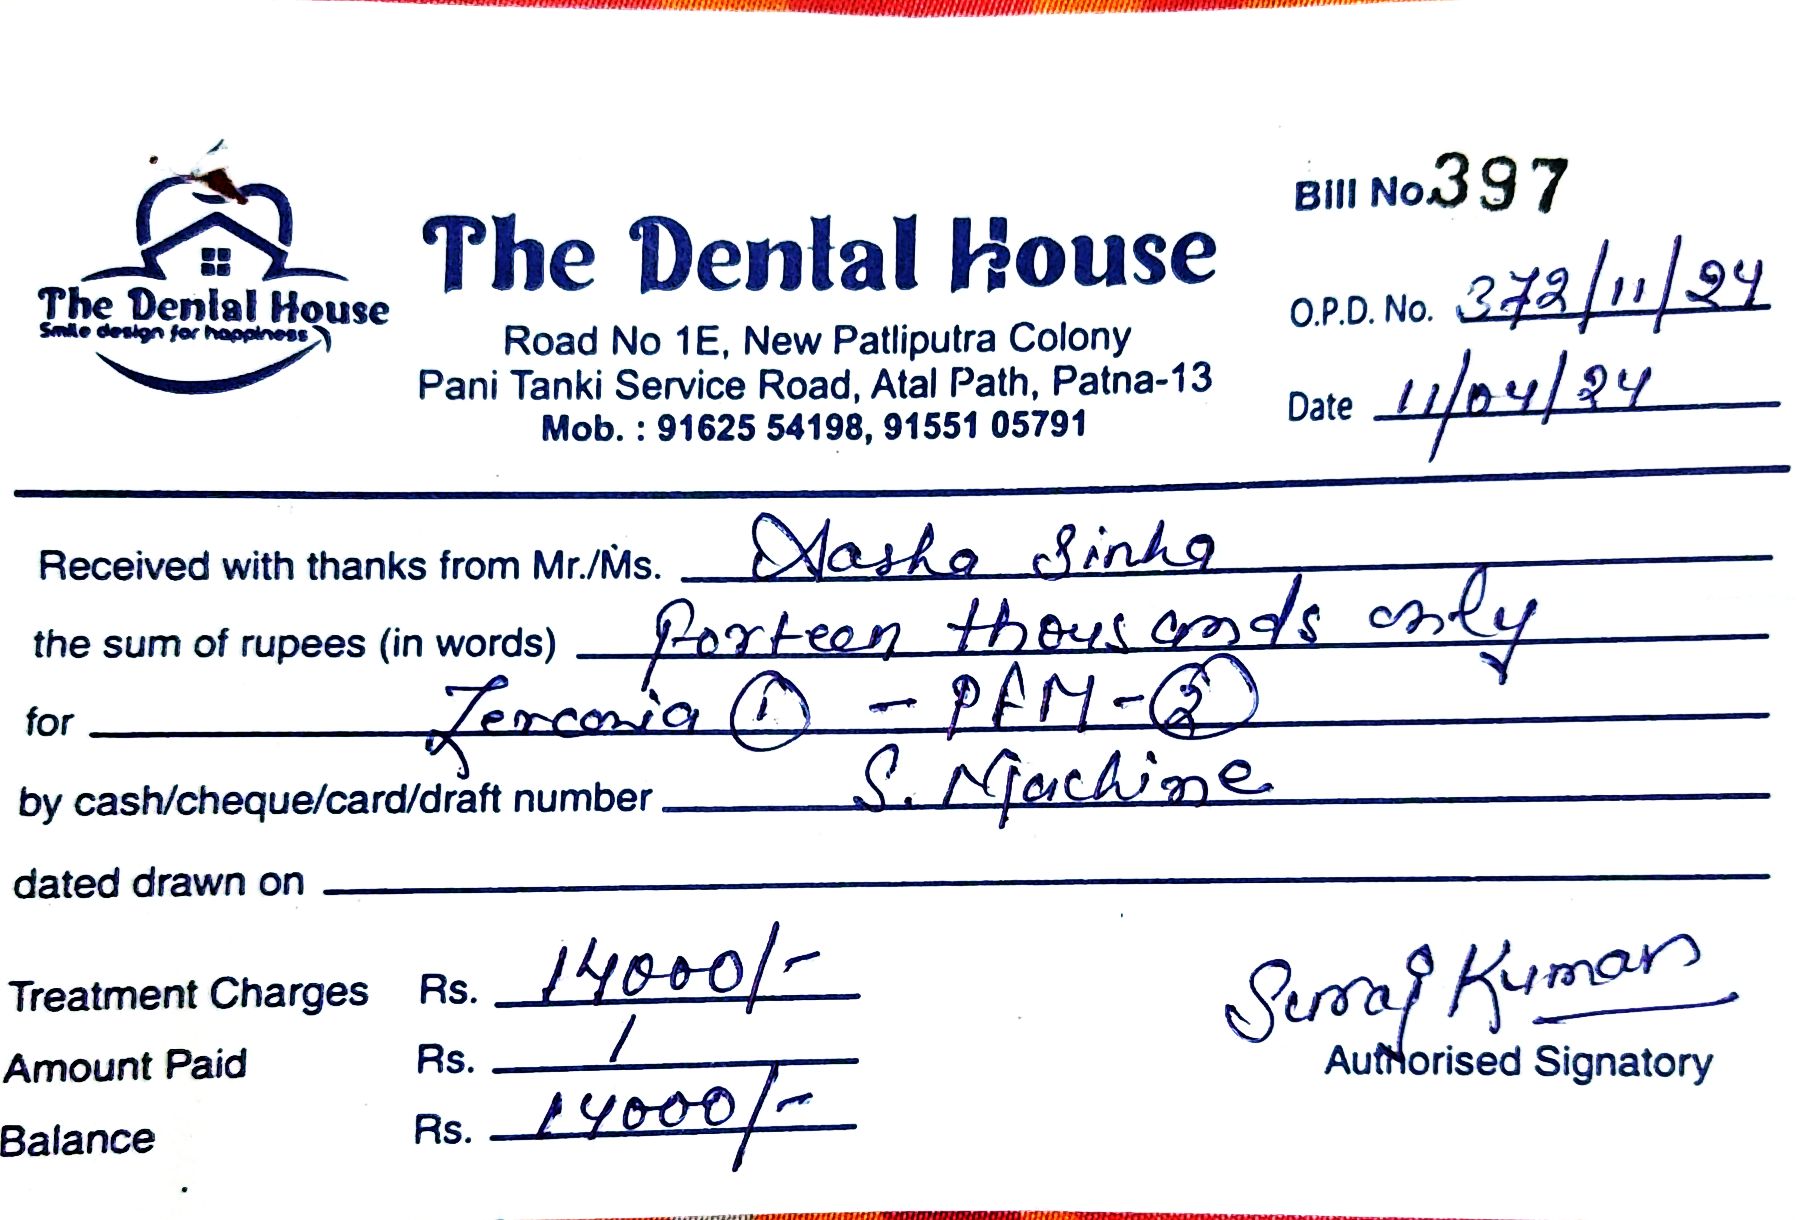 The Dental House
Smile design for happiness
The Dental House
Road No 1E, New Patliputra Colony
Pani Tanki Service Road, Atal Path, Patna-13
Mob. : 91625 54198, 91551 05791
Bill No. 397
O.P.D. No. 372/11/24
Date 11/04/24
Received with thanks from Mr./Ms. Aasha Sinha
the sum of rupees (in words) Forteen thousands only
for Zerconia ① - PFM - ②
by cash/cheque/card/draft number S. Machine
dated drawn on
Treatment Charges Rs. 14000/-
Amount Paid Rs. /
Balance Rs. 14000/-
Suraj Kumar
Authorised Signatory